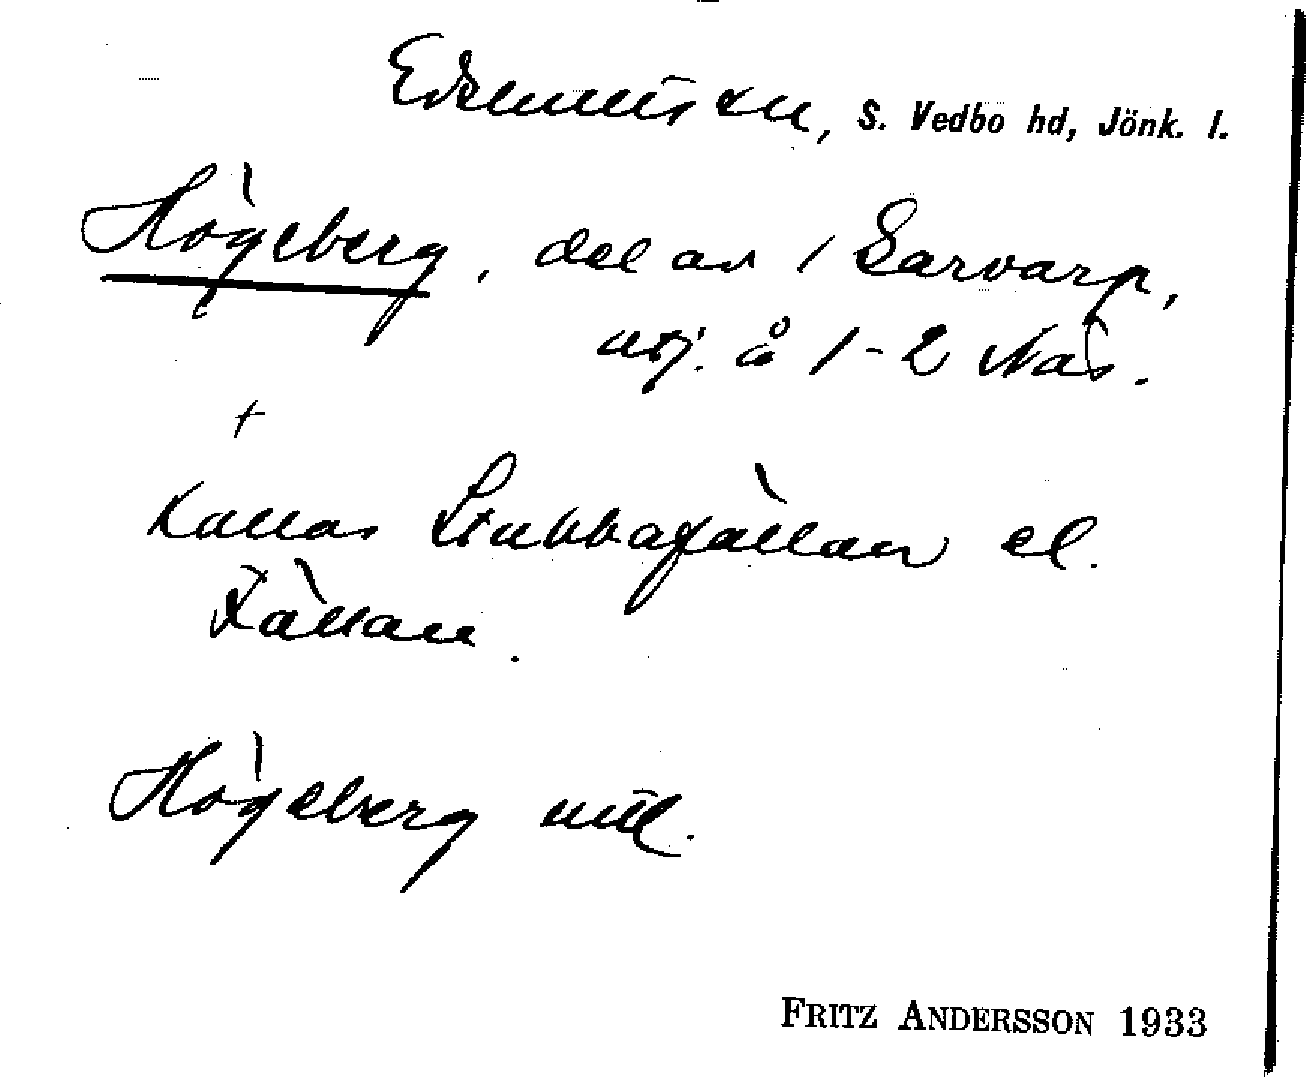 Edshults sn, S. Vedbo hd, Jönk. l.
Högeberg, del av 1 Sarvarp,
utj. å 1-2 Näs.
+
Kallas Stubbafällan el.
Fällan.
Högeberg utt.
FRITZ ANDERSSON 1933